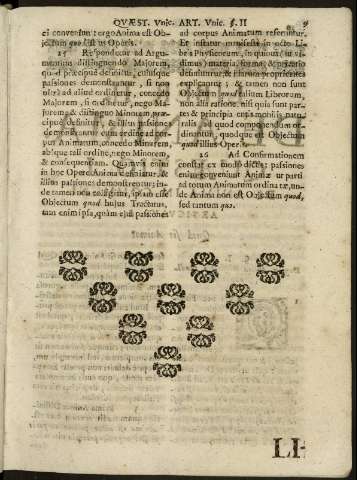 QVÆST. Vnic. ART. Vnic. §. II 9
ei conveniunt: ergo Anima est Ob-
jectum quod istius Operis.
25 Respondetur ad Argu-
mentum distinguendo Majorem,
quod præcipuè definitur, cujusque
passiones demonstrantur, si non
ordinetur ad aliud, concedo
Majorem, si ordinetur, nego Ma-
jorem; & distinguo Minorem, præci-
puè definitur, & illius passiones
demonstrantur cum ordine ad corpus
Animatum, concedo Minorem,
absque tali ordine, nego Minorem,
& consequentiam. Quamvis enim
in hoc Opere Anima definiatur, &
illius passiones demonstrentur; in-
de tamen non colligitur, ipsam esse
Objectum quod hujus Tractatus,
tum enim ipsa, quàm ejus passiones
ad corpus Animatum referuntur.
Et instatur manifestè in octo Li-
bris Physicorum, in quibus
materia, forma, & privatio
definiuntur, & illarum proprietates
explicantur; & tamen non sunt
Objectum quod talium Librorum,
non alia ratione, nisi quia sunt par-
tes, & principia entis mobilis natu-
ralis, quod componendum or-
dinantur, quodque est Objectum
quod illius Operis.
26 Ad Confirmationem
constat ex modò dictis; passiones
enim conveniunt Animæ ut parti
ad totum Animatum ordinatæ, un-
de Anima non est Objectum quod,
sed tantum quo.
LI-